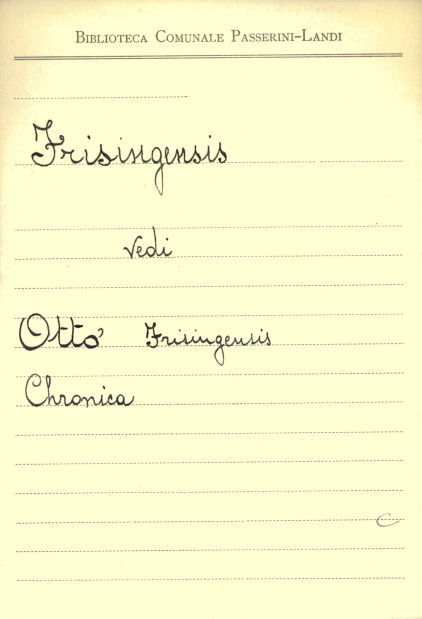 BIBLIOTECA COMUNALE PASSERINI-LANDI
Frisingensis
vedi
Otto Frisingensis
Chronica
C